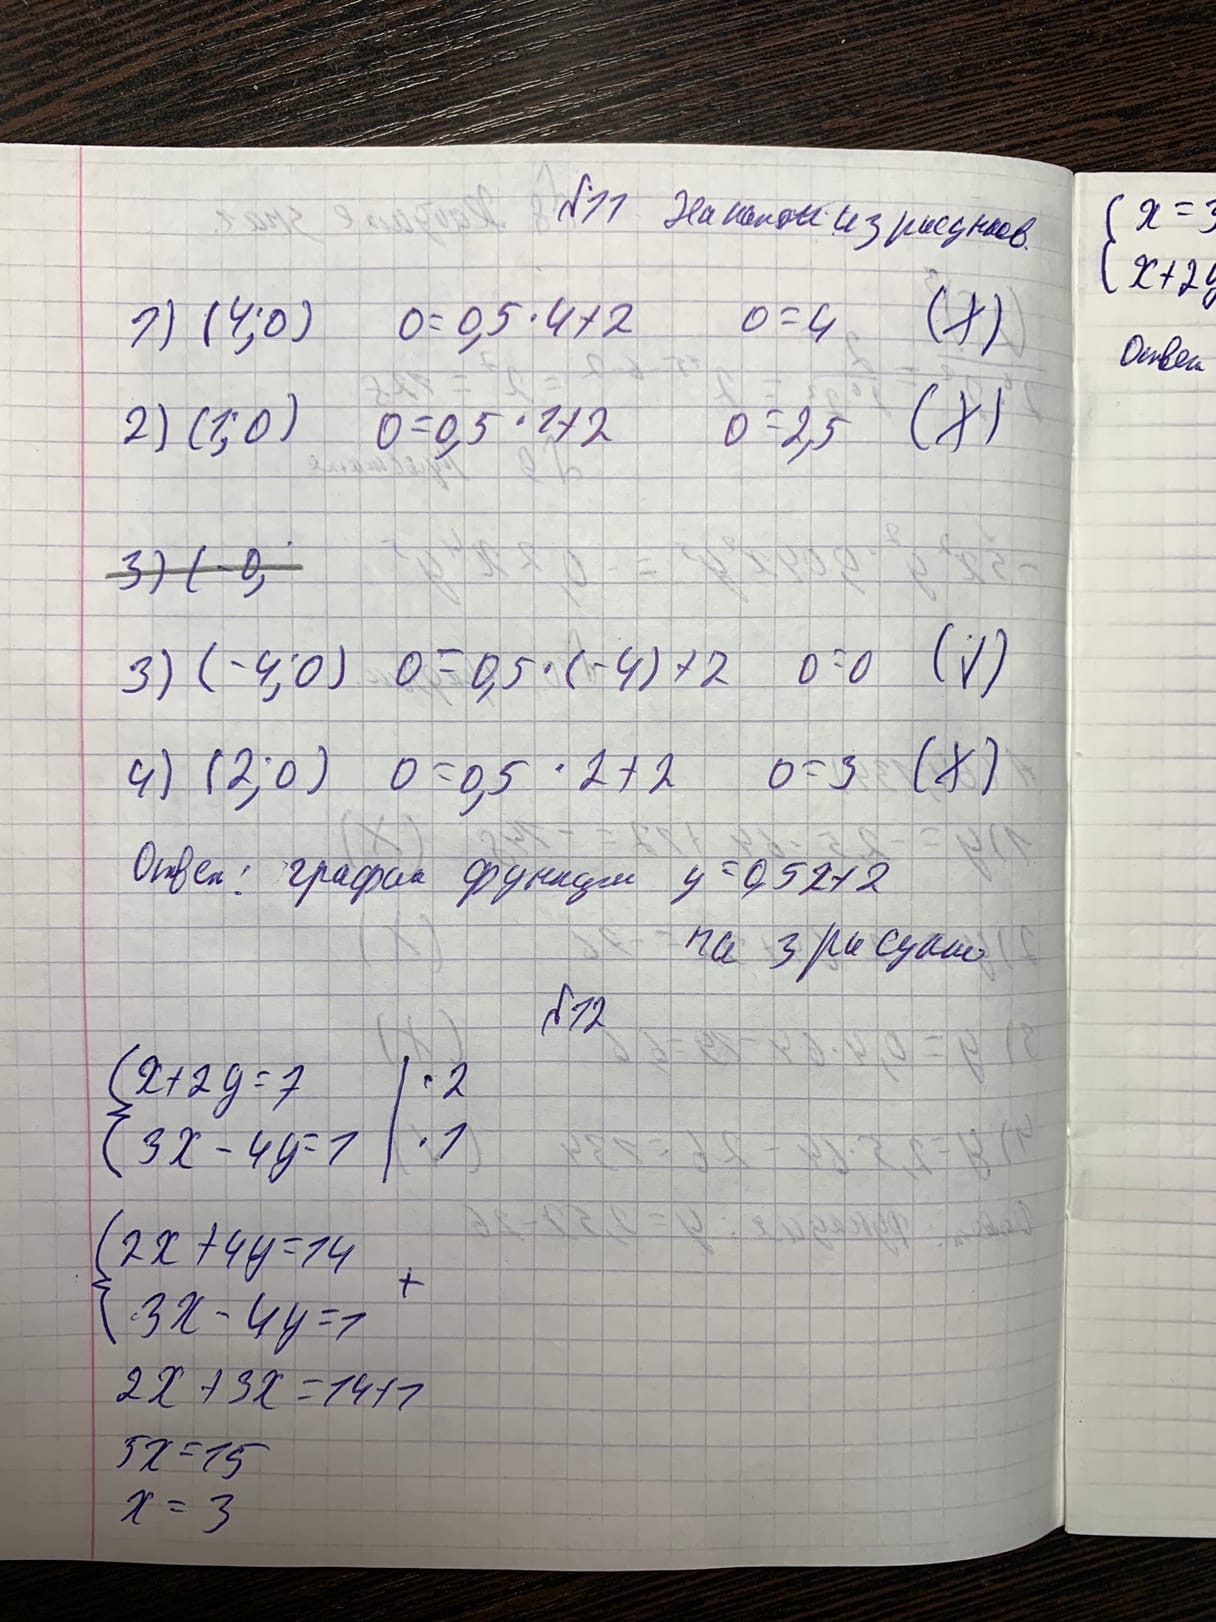 №11 На каком из рисунков
1) (4;0) 0=0,5·4+2 0=4 (X)
2) (1;0) 0=0,5·1+2 0=2,5 (X)
3) (-0,
3) (-4;0) 0=0,5·(-4)+2 0=0 (V)
4) (2;0) 0=0,5·2+2 0=3 (X)
Ответ: график функции y=0,5x+2
на 3 рисунке
№12
{x+2y=7 |·2
{3x-4y=1 |·1
{2x+4y=14
{3x-4y=1 +
2x+3x=14+1
5x=15
x=3
{x=3
{x+2y
Ответ